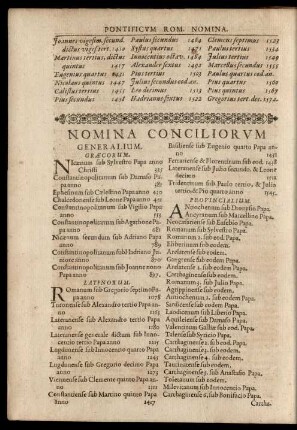 PONTIFICVM ROM. NOMINA.
Ioannes vigesim. secund.
dictus vigesi. tert. 1410
Martinus tertius, dictus
quintus 1417
Eugenius quartus 1431
Nicolaus quintus 1447
Calistus tertius 1455
Pius secundus 1458
Paulus secundus 1464
Sixtus quartus 1471
Innocentius octav. 1484
Alexander sextus 1492
Pius tertius 1503
Iulius secundus eod. an.
Leo decimus 1513
Hadrianus sextus 1522
Clemens septimus 1523
Paulus tertius 1534
Iulius tertius 1549
Marcellus secundus 1555
Paulus quartus eod. an.
Pius quartus 1560
Pius quintus
Gregorius tert. dec. 1572.
NOMINA CONCILIORVM
GENERALIVM.
GRÆCORVM.
Nicænum sub Sylvestro Papa anno
Christi
Constantinopolitanum sub Damaso Pa-
pa anno
Ephesinum sub Celestino Papa anno
Chalcedonense sub Leone Papa anno
Constantinopolitanum sub Vigilio Papa
anno
Constantinopolitanum sub Agathone Pa-
pa anno
Nicænum secundum sub Adriano Papa
anno
Constantinopolitanum sub Adriano Iu-
niore anno
Constantinopolitanum sub Ioanne nono
Papa anno
LATINORVM.
Romanum sub Gregorio septimo Papa
anno
Turonense sub Alexandro tertio Papa an-
no
Lateranense sub Alexandro tertio Papa
anno
Lateranense generale dictum sub Inno-
centio tertio Papa anno
Lugdunense sub Innocentio quarto Papa
anno
Lugdunense sub Gregorio decimo Papa
anno
Viennense sub Clemente quinto Papa an-
no
Constantiense sub Martino quinto Papa
anno 1417
Basiliense sub Eugenio quarto Papa an-
no
Ferrariense & Florentinum sub eod. 1438
Lateranense sub Iulio secundo, & Leone
decimo
Tridentinum sub Paulo tertio, & Iulio
tertio, & Pio quarto anno
PROVINCIALIVM
Antiochenum sub Dionysio Papa.
Ancyranum sub Marcellino Papa.
Neocæsariense sub Eusebio Papa.
Romanum sub Sylvestro Papa.
Romanum 2. sub eod. Papa.
Eliberitinum sub eodem.
Arelatense sub eodem.
Gangrense sub eodem Papa.
Arelatense 2. sub eodem Papa.
Carthaginense sub eodem Papa.
Romanum 3. sub Iulio Papa.
Agrippinense sub eodem.
Sardicense sub eodem Papa.
Antiochenum 2. sub eodem Papa.
Sirmiense sub eodem Papa.
Laodicenum sub Liberio Papa.
Aquileiense sub Damaso Papa.
Valentinum Galliæ sub eod. Papa.
Telense sub Syricio Papa.
Carthaginense 2. sub eodem.
Carthaginense 3. sub eodem.
Carthaginense 4. sub eodem.
Taurinatense sub eodem.
Carthaginense 5. sub Anastasio Papa.
Toletanum sub eodem.
Milevitanum sub Innocentio Papa.
Carthaginense 6. sub Bonifacio Papa.
Cartha-